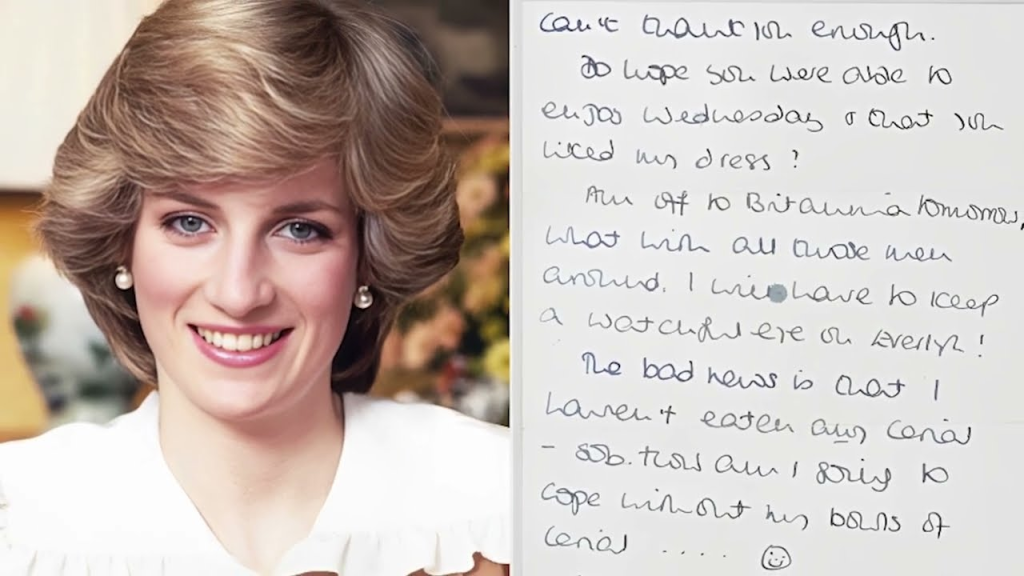 can't thank you enough.
Do hope you were able to
enjoy Wednesday & that you
liked my dress?
Am off to Britannia tomorrow,
what with all those men
around, I will have to keep
a watchful eye on Everlyn!
The bad news is that I
haven't eaten any cerial
- sob. How am I going to
cope without my bowls of
cerial ....